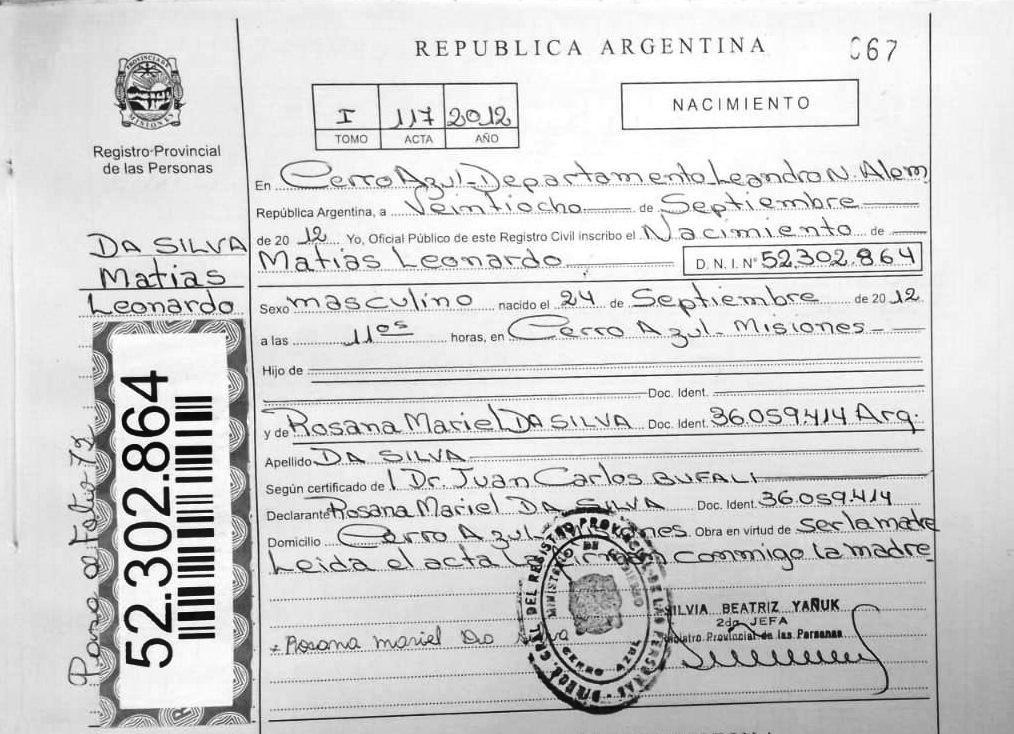 REPUBLICA ARGENTINA
067
PROVINCIA DE MISIONES
Registro Provincial
de las Personas
I 117 2012
TOMO ACTA AÑO
NACIMIENTO
DA SILVA
Matias
Leonardo
52.302.864
Pasa de Folio 72
En Cerro Azul-Departamento Leandro N. Alem
República Argentina, a Veintiocho de Septiembre
de 2012 Yo, Oficial Público de este Registro Civil inscribo el Nacimiento de
Matias Leonardo D.N.I. N° 52.302.864
Sexo masculino nacido el 24 de Septiembre de 2012
a las 11os horas, en Cerro Azul-Misiones-
Hijo de
Doc. Ident.
y de Rosana Mariel DA SILVA Doc. Ident. 36.059.414 Arg.
Apellido DA SILVA
Según certificado del Dr. Juan Carlos BUFALI
Declarante Rosana Mariel DA SILVA Doc. Ident. 36.059.414
Domicilio Cerro Azul-Misiones. Obra en virtud de ser la madre
Leida el acta la firma conmigo la madre
DIRECC. GRAL DEL REGISTRO PROVINCIAL DE LAS PERSONAS
MINISTERIO DE GOBIERNO
CERRO AZUL
Rosana mariel Da Silva
SILVIA BEATRIZ YAÑUK
2da JEFA
Registro Provincial de las Personas